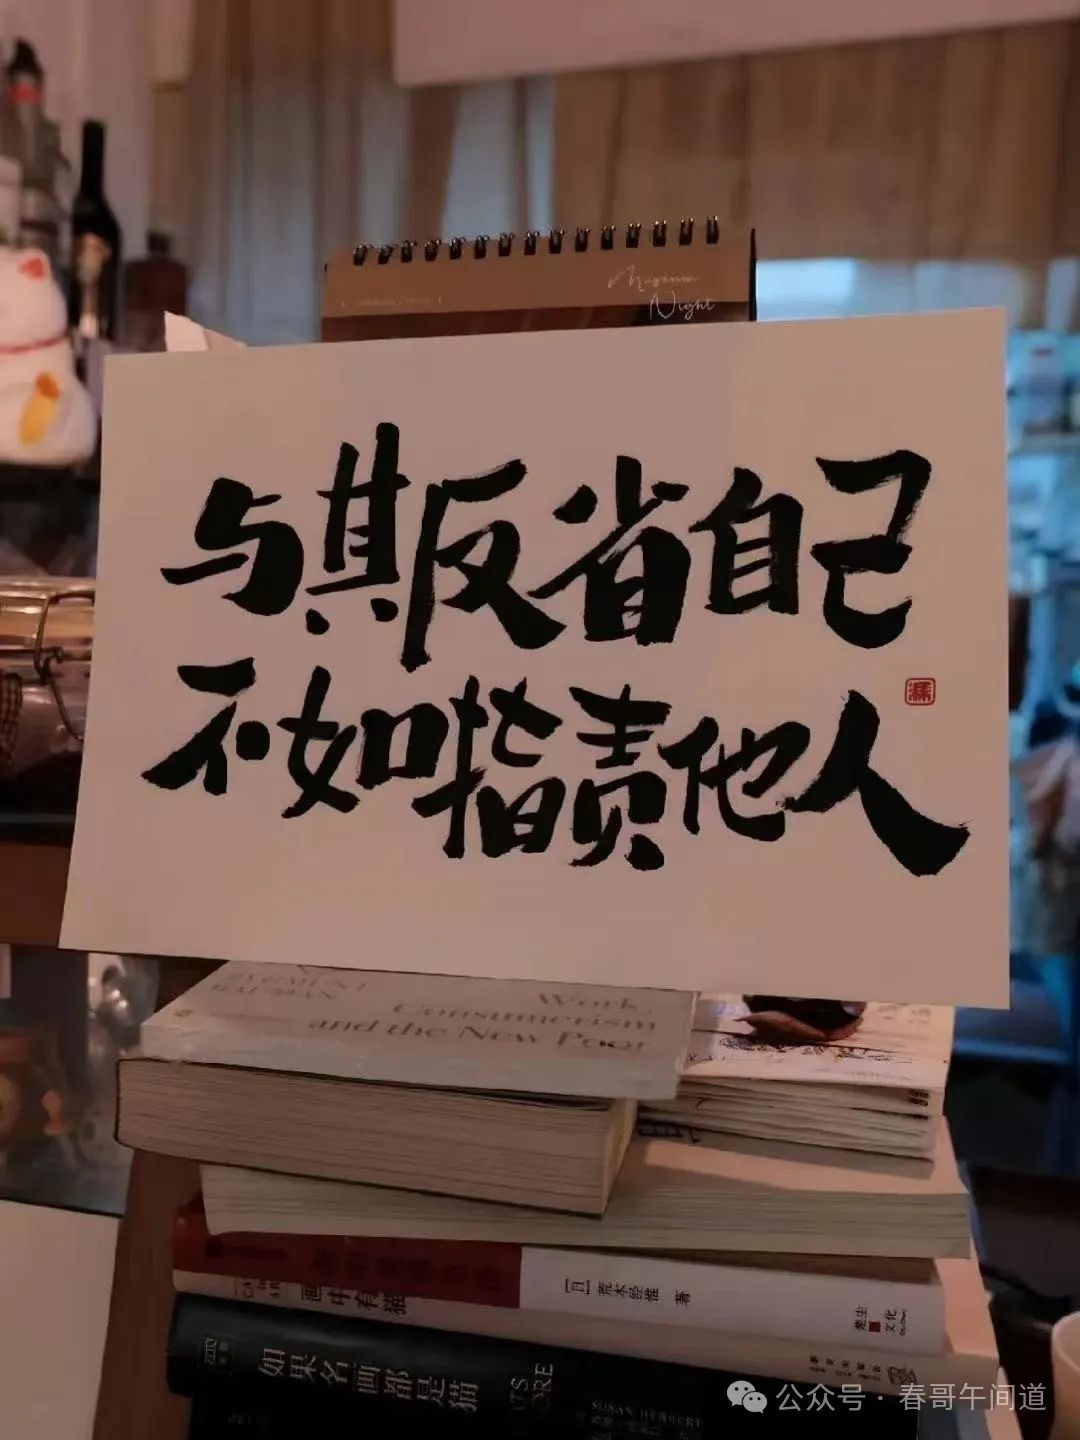 Museum
Night
与其反省自己
不如指责他人
Work,
Consumerism
and the New Poor
[日]荒木经惟 著
楚尘
文化
画中有猫
如果名画都是猫
SUSAN HERBERT
公众号 · 春哥午间道